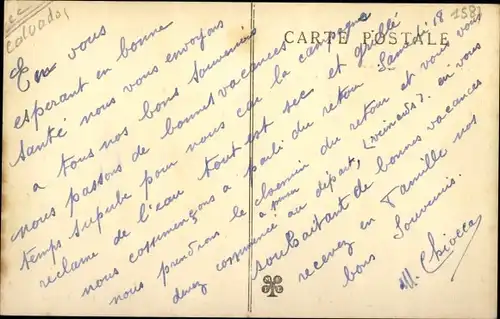 Calvados
1583
CARTE POSTALE
En vous
esperant en bonne
Santé nous vous envoyons
a tous nos bons Souvenirs
nous passons de bonnes vacances
temps superbe pour nous car la campagne
reclame de l'eau tout est sec et grillé
nous commençons a parlé du retour Samedi 18
nous prendrons le chemin du retour et vous vous
devez commencé a penser au départ, (veinards). en vous
souhaitant de bonnes vacances
recevez en Famille nos
bons Souvenirs.
M. Chiocca